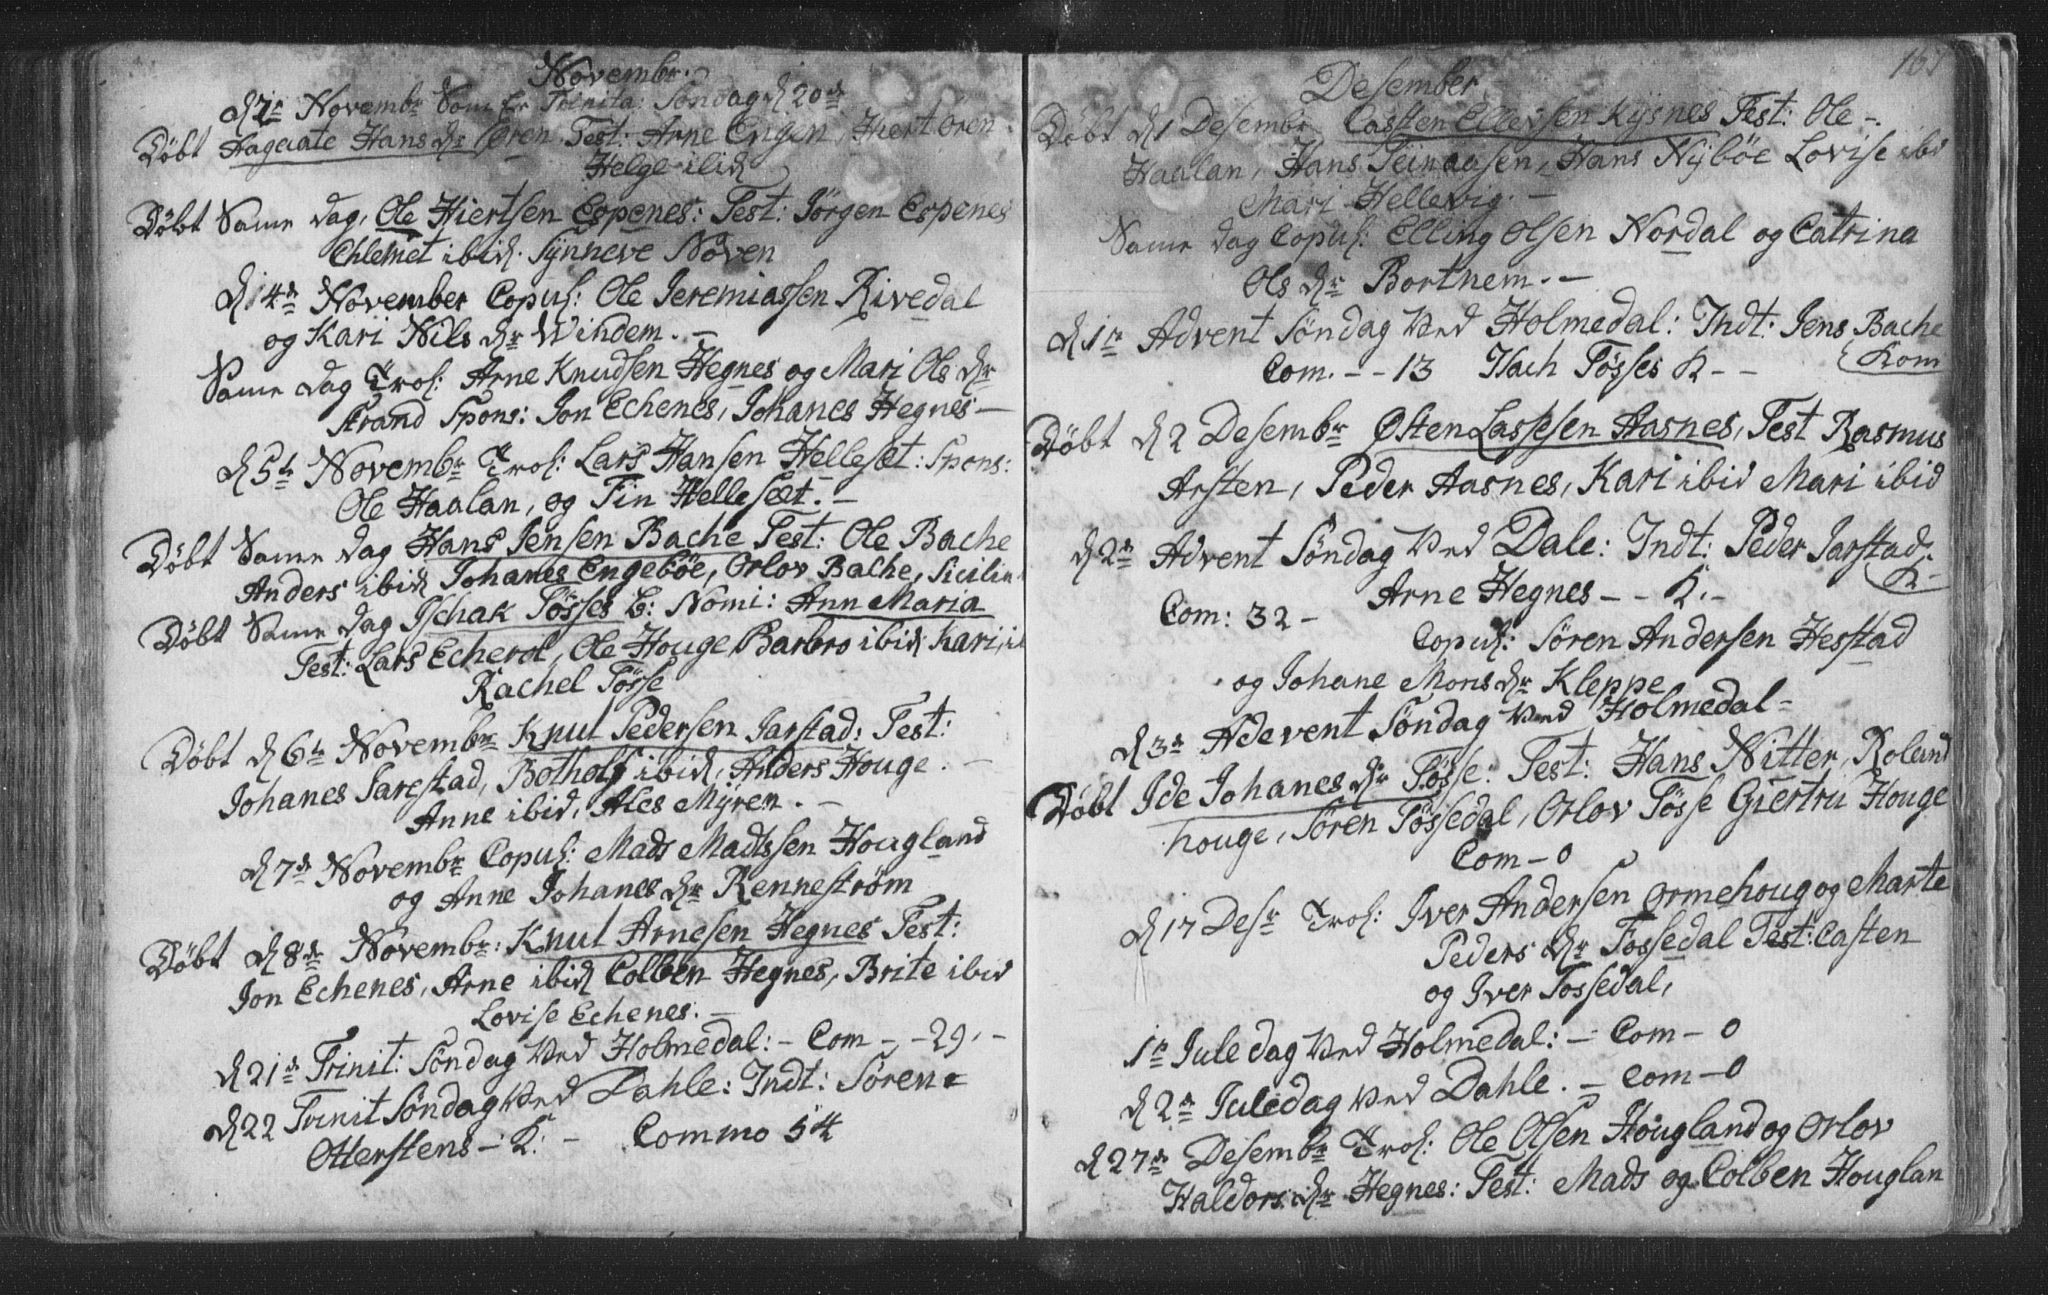 Novembr.
d 1e Novembr Som Er Trinita: Søndag d 20de
Døbt Aagaate Hans dr Øren Test: Arne Engen, Hiert Øren
Helge ibid
Døbt Same dag, Ole Hiertsen Espenes: Test: Jørgen Espenes
Chlemet ibid. Synneve Nøven
d 14de November Copul: Ole Jeremiassen Rivedal
og Kari Nils dr Windem. –
Same dag Trol: Arne Knudsen Hegnes og Mari Ols dr
Strand Spons: Jon Echenes, Johanes Hegnes –
d 5te Novembr Trol: Lars Hansen Hellesæt: Spons:
Ole Haalan, og Tin Hellesæt. –
Døbt Same dag Hans Jensen Bache Test: Ole Bache
Anders ibid Johanes Engebøe, Orlov Bache, Sicilie
Døbt Same dag Ischak Tøsses B: Nomi: Ann Maria
Test: Lars Echerol, Ole Houge, Barbro ibid, Kari,
Rachel Tøsse
Døbt d 6te Novembr Knut Pedersen Jarstad: Test:
Johanes Jarestad, Botholf ibid, Anders Houge. –
Anne ibid, Ales Myren. –
d 7de Novembr Copul: Mads Madtssen Hougland
og Anne Johanes dr Rennestrøm
Døbt d 8de Novembr: Knut Arnesen Hegnes Test:
Jon Echenes, Arne ibid Colben Hegnes, Brite ibid
Lovise Echenes. –
d 21de Trinit: Søndag Ved Holmedal: – Com – – 29. –
d 22 Trinit Søndag Ved Dahle: Indt: Søren
Otterstens – K: – Commo 54
167
Desember
Døbt d 1 Desembr Casten Ellevsen Kysnes Test: Ole –
Haalan, Hans Steinagsen, Hans Nybøe Lovise ibd
Mari Hellevig. –
Same dag Copul: Elling Olsen Nordal og Catrina
Ols dr Bortnem. –
d 1te Advent Søndag Ved Holmedal: Indt: Jens Bache
Kom
Com. – – 13 Isach Tøsses K – –
Døbt d 2 Desembr Østen Lassesen Aasnes, Test Rasmus
Arsten, Peder Aasnes, Kari ibid Mari ibid
d 2de Advent Søndag Ved Dale: Indt: Peder Jarstads
K –
Arne Hegnes – – K. –
Com: 32 –
Copul: Søren Andersen Hesstad
og Johane Mons dr Kleppe
d 3de Adevent Søndag Ved Holmedal –
Døbt Ide Johanes dr Tøsse: Test: Hans Nitter, Roland
houge, Søren Tøssedal, Orlov Tøsse Giertru Houge
Com – 0
d 17 Desr Trol: Iver Andersen Ormehoug og Marte
Peders dr Fossedal Test: Casten
og Iver Fossedal,
1e Jule dag Ved Holmedal: – Com – 0
d 2de Juledag Ved Dahle. – Com – 0
d 27de Desembr Trol: Ole Olsen Hougland og Orlov
Haldors dr Hegnes: Test: Mads og Colben Houglan